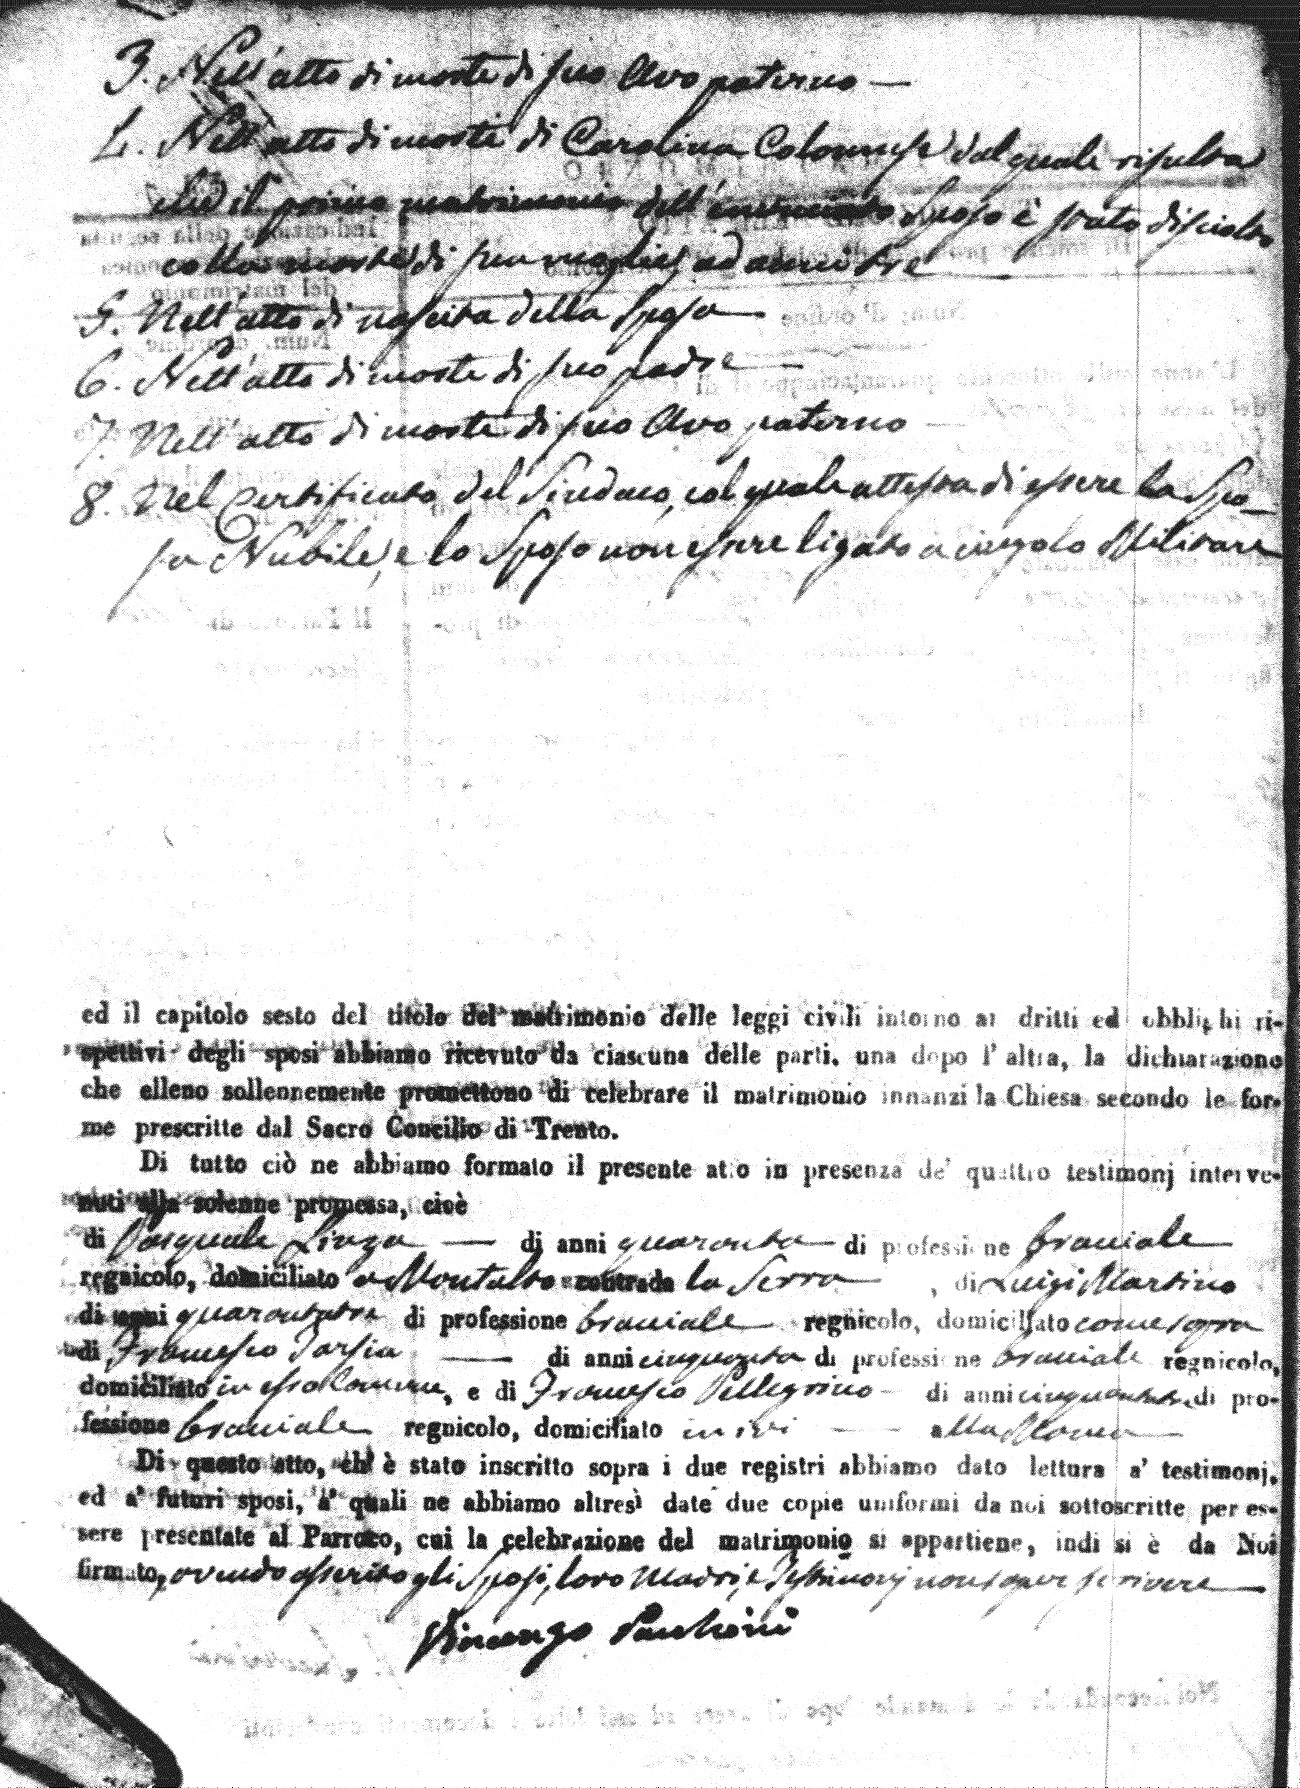 3. Nell'atto di morte di suo Avo paterno —
4. Nell'atto di morte di Carolina Colonnese dal quale risulta
che il primo matrimonio dell' Sposo è stato disciolto
colla morte di sua moglie ad anni tre
5. Nell'atto di nascita della Sposa —
6. Nell'atto di morte di suo padre —
7. Nell'atto di morte di suo Avo paterno —
8. Nel Certificato del Sindaco, col quale attesta di essere la Spo-
sa Nubile, e lo Sposo non essere ligato a cingolo Militare
ed il capitolo sesto del titolo del matrimonio delle leggi civili intorno ai dritti ed obblighi ri-
spettivi degli sposi abbiamo ricevuto da ciascuna delle parti, una dopo l' altra, la dichiarazione
che elleno sollennemente promettono di celebrare il matrimonio innanzi la Chiesa secondo le for-
me prescritte dal Sacro Concilio di Trento.
Di tutto ciò ne abbiamo formato il presente atto in presenza de' quattro testimonj interve-
nuti alla solenne promessa, cioè
di Pasquale — di anni quaranta — di professione bracciale
regnicolo, domiciliato a Montalto contrada la Serra , di Luigi Martino
di anni quarantatre di professione bracciale — regnicolo, domiciliato come sopra
di Francesco Tarsia — di anni cinquanta di professione bracciale regnicolo,
domiciliato in esso Comune, e di Francesco Pellegrino — di anni di pro-
fessione bracciale regnicolo, domiciliato ivi — alla
Di questo atto, ch' è stato inscritto sopra i due registri abbiamo dato lettura a' testimonj,
ed a' futuri sposi, a' quali ne abbiamo altresì date due copie uniformi da noi sottoscritte per es-
sere presentate al Parroco, cui la celebrazione del matrimonio si appartiene, indi si è da Noi
firmato, avendo asserito gli Sposi, loro Madri, e Testimonj non saper scrivere —
Vincenzo